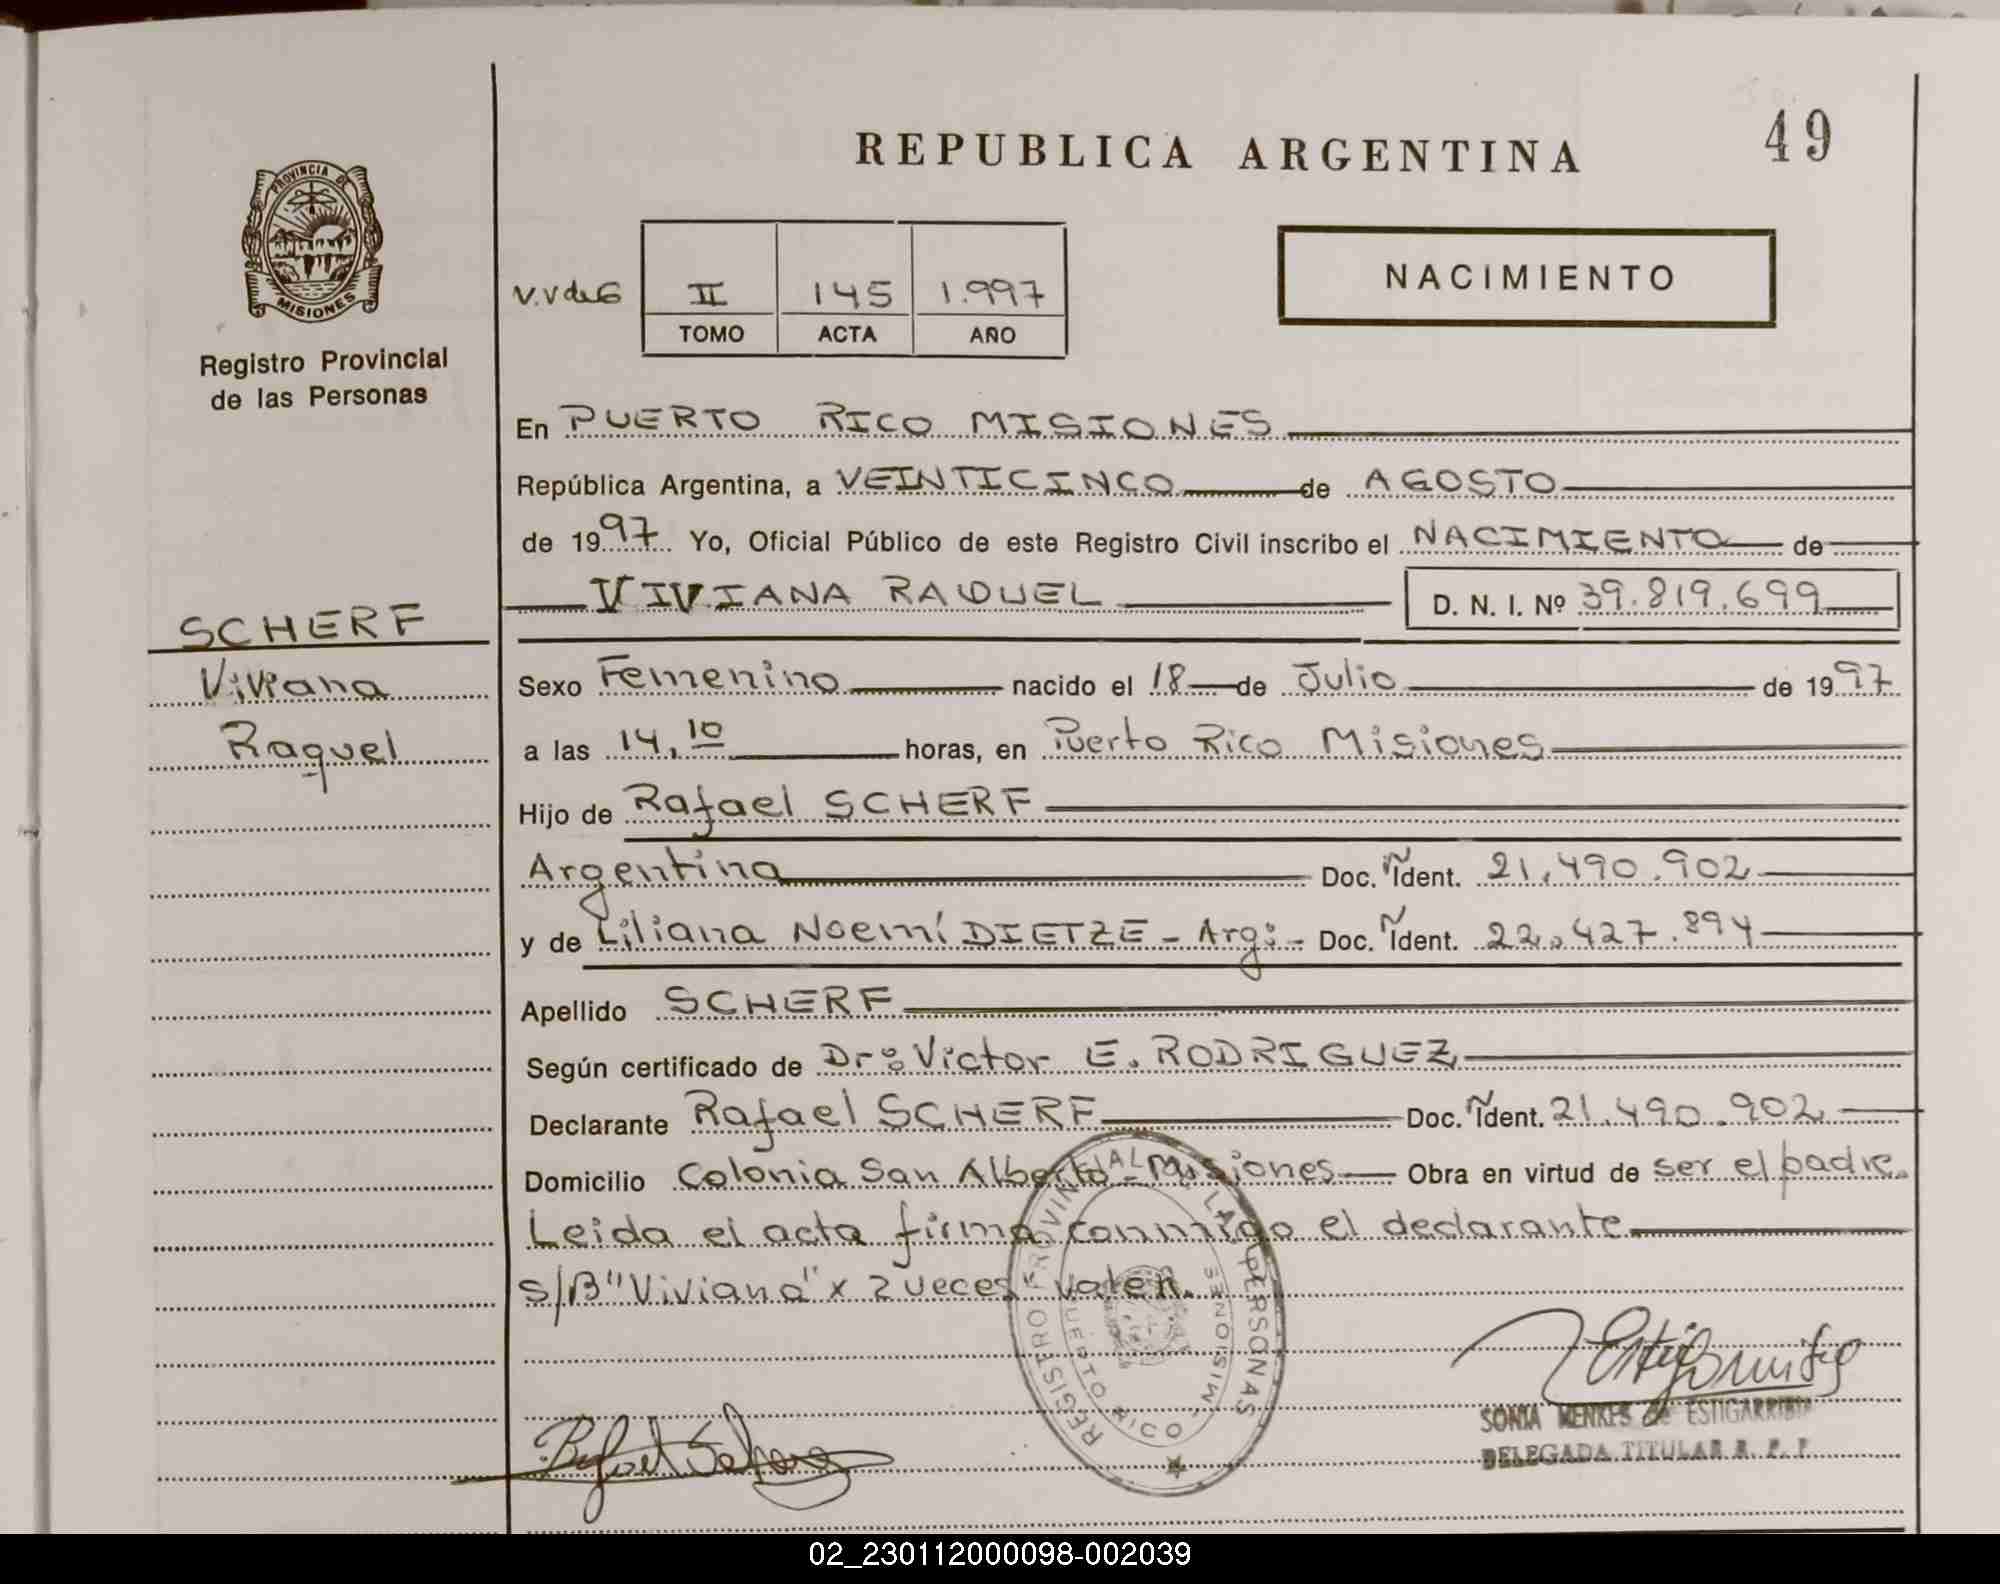 REPUBLICA ARGENTINA
49
PROVINCIA DE
MISIONES
Registro Provincial
de las Personas
V.V de G
II 145 1.997
TOMO ACTA AÑO
NACIMIENTO
En PUERTO RICO MISIONES
República Argentina, a VEINTICINCO de AGOSTO
de 1997 Yo, Oficial Público de este Registro Civil inscribo el NACIMIENTO de
VIVIANA RAQUEL D. N. I. Nº 39.819.699
SCHERF
Viviana
Raquel
Sexo Femenino nacido el 18 de Julio de 1997
a las 14,10 horas, en Puerto Rico Misiones
Hijo de Rafael SCHERF
Argentina Doc. Ident. 21.490.902
y de Liliana Noemí DIETZE - Arg: - Doc. Ident. 22.427.894
Apellido SCHERF
Según certificado de Dr: Victor E. RODRIGUEZ
Declarante Rafael SCHERF Doc. Ident. 21.490.902
Domicilio Colonia San Alberto - Misiones Obra en virtud de ser el padre.
Leida el acta firma conmigo el declarante
s/B "Viviana" x 2 veces valen.
REGISTRO PROVINCIAL DE LAS PERSONAS
PUERTO RICO - MISIONES
SONIA MENKES de ESTIGARRIBIA
DELEGADA TITULAR R. P. P.
02_230112000098-002039